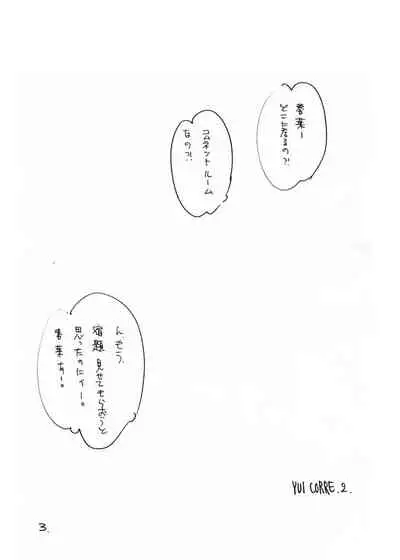 春菜ー
どこに居るの?!
コムネットルーム
なの?!
ん、もう、
宿題 見せてもらおうと
思ったのにィー。
春菜ぁー。
YUI CORRE.2.
3.